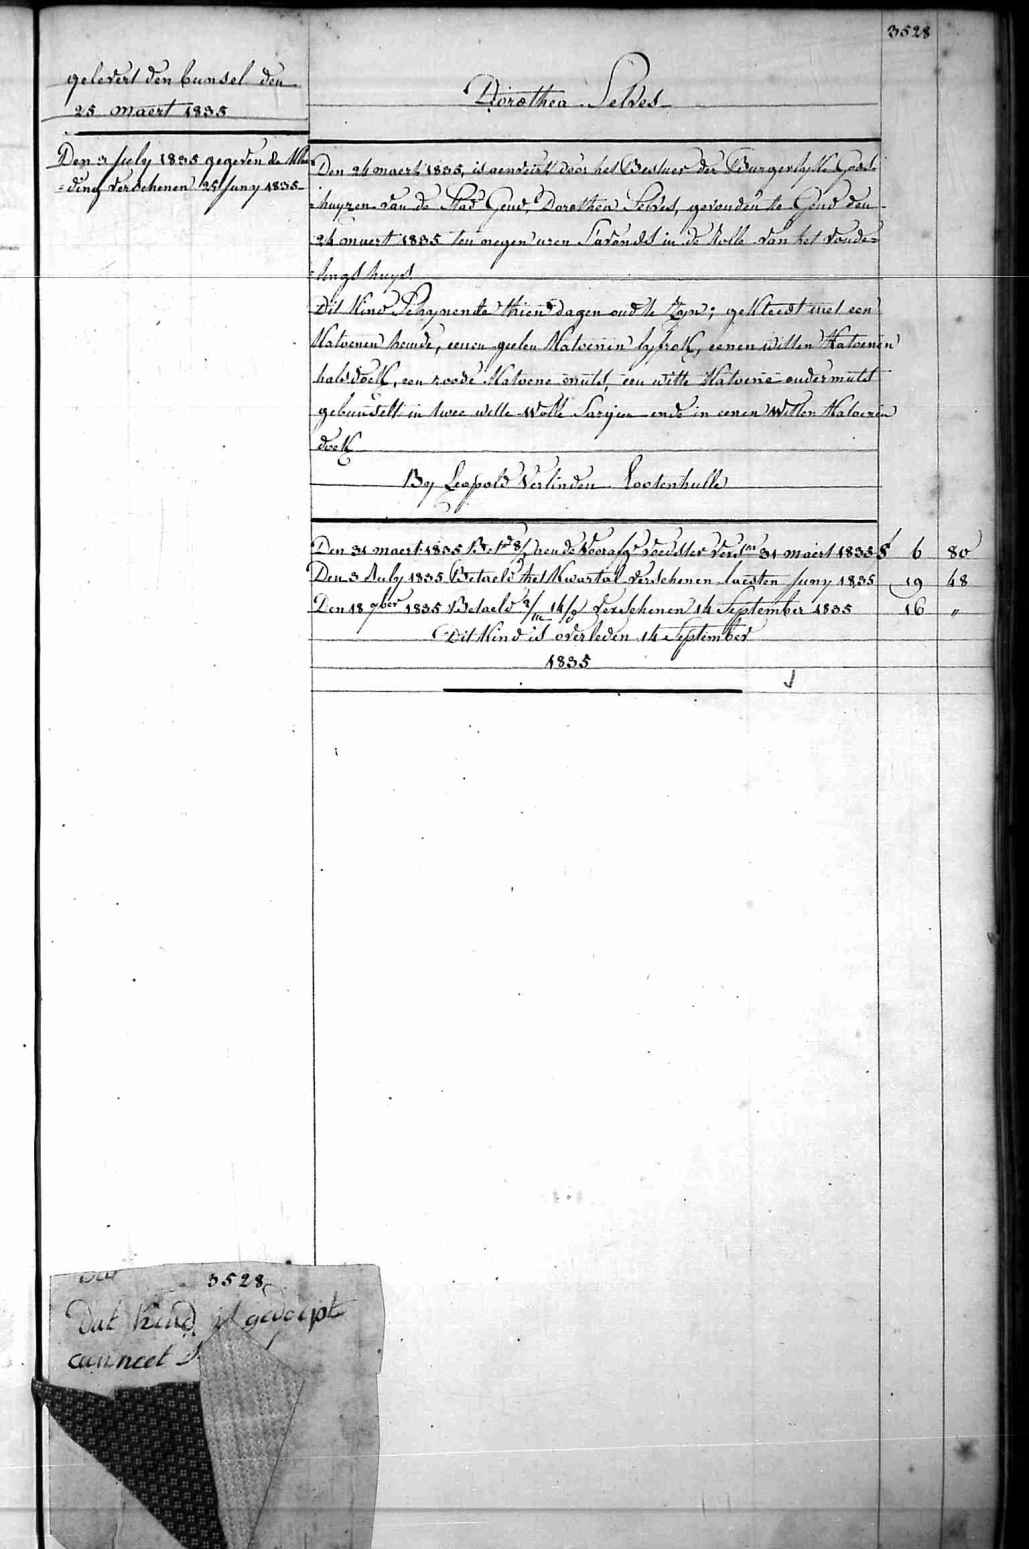 3528
gelevert den bunsel den
25 maert 1835
Den 3 July 1835 gegeven de
=ding verschenen 25 Juny 1835
Dorothea Selves
Den 24 maert 1835, is aenveird door het Bestuer der Burgerlyke Gods=
=huyzen van de Stad Gend, Dorothea Selves, gevonden te Gend den
24 maert 1835 ten negen uren S'avonds in de Rolle van het Vonde=
=lings huys
Dit Kind Schynende thien dagen oud te Zyn; gekleed met een
Katoenen hemde, eenen geelen Katoenen lyfrok, eenen witten Katoenen
halsdoek, een roode Katoene muts, een witte Katoene ondermuts
gebunselt in twee witte wolle Sargien ende in eenen witten Katoenen
doek
By Leopold Verlinden Lootenhulle
Den 31 maert 1835 aen de voedster 31 maert 1835 6 80
Den 3 July 1835 Betaeld het Kwartal verschenen laesten Juny 1835 19 48
Den 18 9ber 1835 Betaeld 2/m 14/d verschenen 14 September 1835 16 "
Dit Kind is overleden 14 September
1835
3528
Dat kind is gedoept